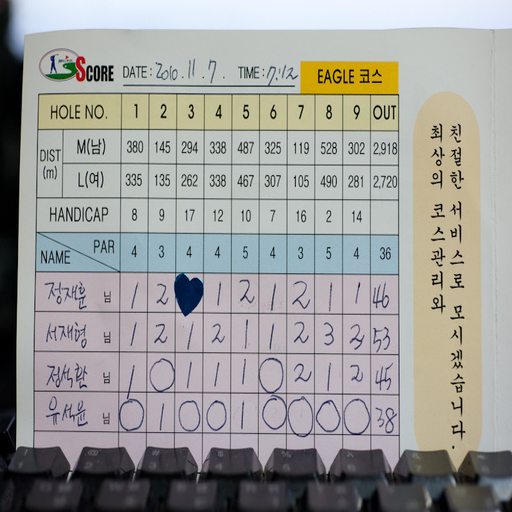 SCORE DATE: 2010. 11. 7. TIME: 7:12 EAGLE 코스
HOLE NO. 1 2 3 4 5 6 7 8 9 OUT
DIST (m) M(남) 380 145 294 338 487 325 119 528 302 2,918
L(여) 335 135 262 338 467 307 105 490 281 2,720
HANDICAP 8 9 17 12 10 7 16 2 14
NAME PAR 4 3 4 4 5 4 3 5 4 36
정재훈 님 1 2 ♥ 1 2 1 2 1 1 46
서재형 님 1 2 1 2 1 1 2 3 2 53
정석환 님 1 0 1 1 1 0 2 1 2 45
유석윤 님 0 1 0 0 1 0 0 0 0 38
친절한 서비스로 모시겠습니다.
최상의 코스관리와